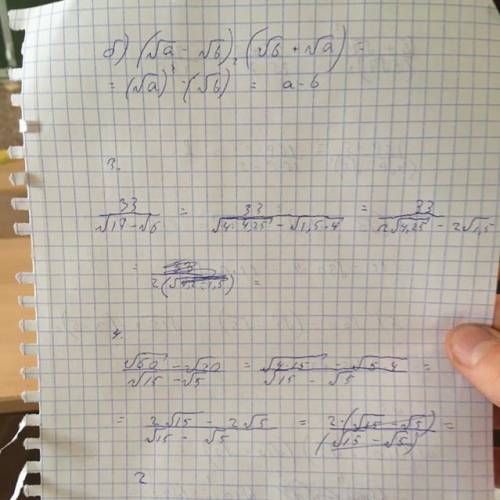 б) (√a - √b) (√b + √a) =
= (√a)² - (√b)² = a - b
3.
33/(√17 - √6) = 33/(√(4·4,25) - √(1,5·4)) = 33/(2√4,25 - 2√1,5)
= 33/(2(√4,2 - 1,5)) =
4.
(√60 - √20)/(√15 - √5) = (√(4·15) - √(5·4))/(√15 - √5) =
= (2√15 - 2√5)/(√15 - √5) = 2·(√15 - √5)/(√15 - √5) =
2